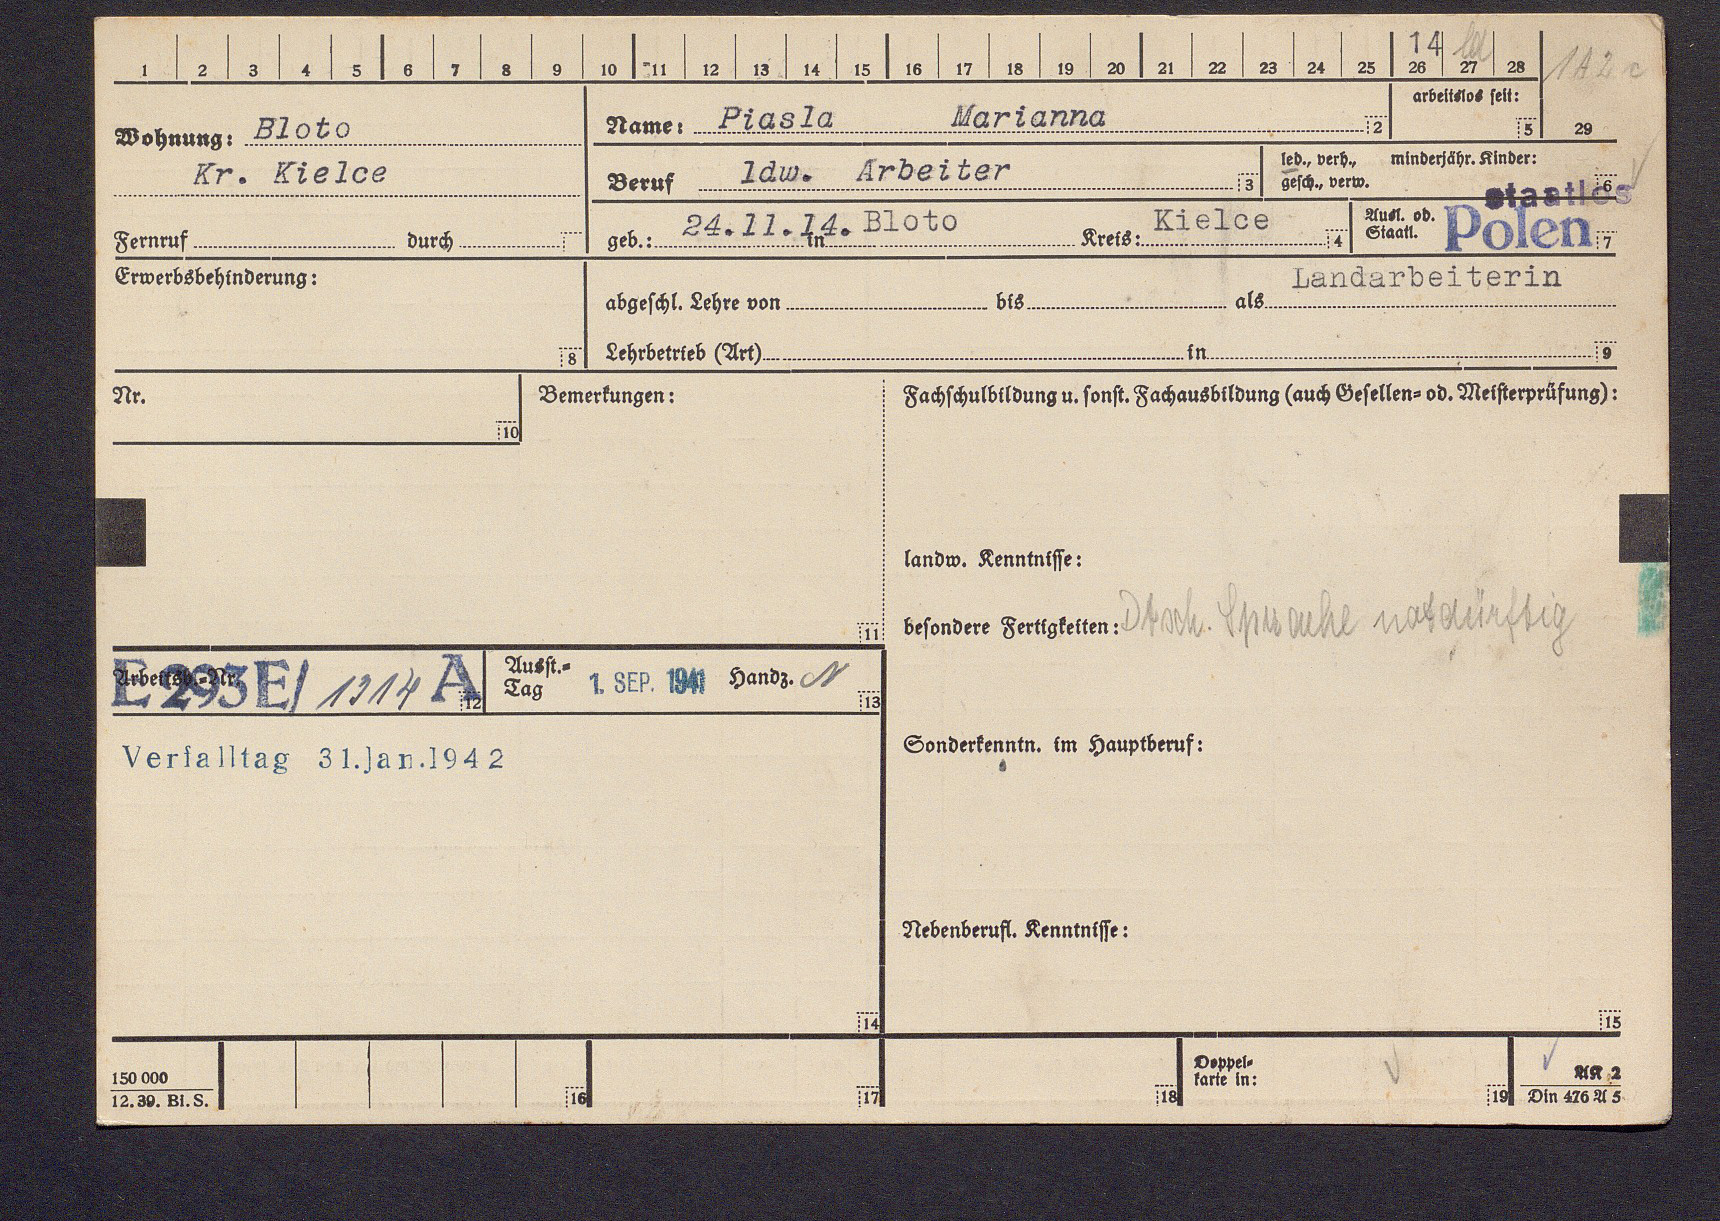 1 2 3 4 5 6 7 8 9 10 11 12 13 14 15 16 17 18 19 20 21 22 23 24 25 26 27 28 29
14
1A2c
arbeitslos seit: 5
Wohnung: Bloto
Kr. Kielce
Name: Piasla Marianna 2
Beruf ldw. Arbeiter 3
led., verh., minderjähr. Kinder:
gesch., verw. 6
staatlos
geb.: 24.11.14. in Bloto Kreis: Kielce 4
Ausl. od. Staatl. Polen 7
Fernruf durch
Erwerbsbehinderung: 8
Landarbeiterin
abgeschl. Lehre von bis als
Lehrbetrieb (Art) in 9
Nr. 10
Bemerkungen: 11
Fachschulbildung u. sonst. Fachausbildung (auch Gesellen- od. Meisterprüfung):
landw. Kenntnisse:
besondere Fertigkeiten: Dtsch. Sprache notdürftig
Arbeitsb.-Nr. E 293E/ 1314 A 12
Ausst.-Tag 1. SEP. 1941 Handz. 13
Verfalltag 31.Jan.1942
Sonderkenntn. im Hauptberuf:
Nebenberufl. Kenntnisse:
14
15
150 000
12. 39. Bl. S.
16
17
18
Doppel-
karte in: 19
AK 2
Din 476 A 5